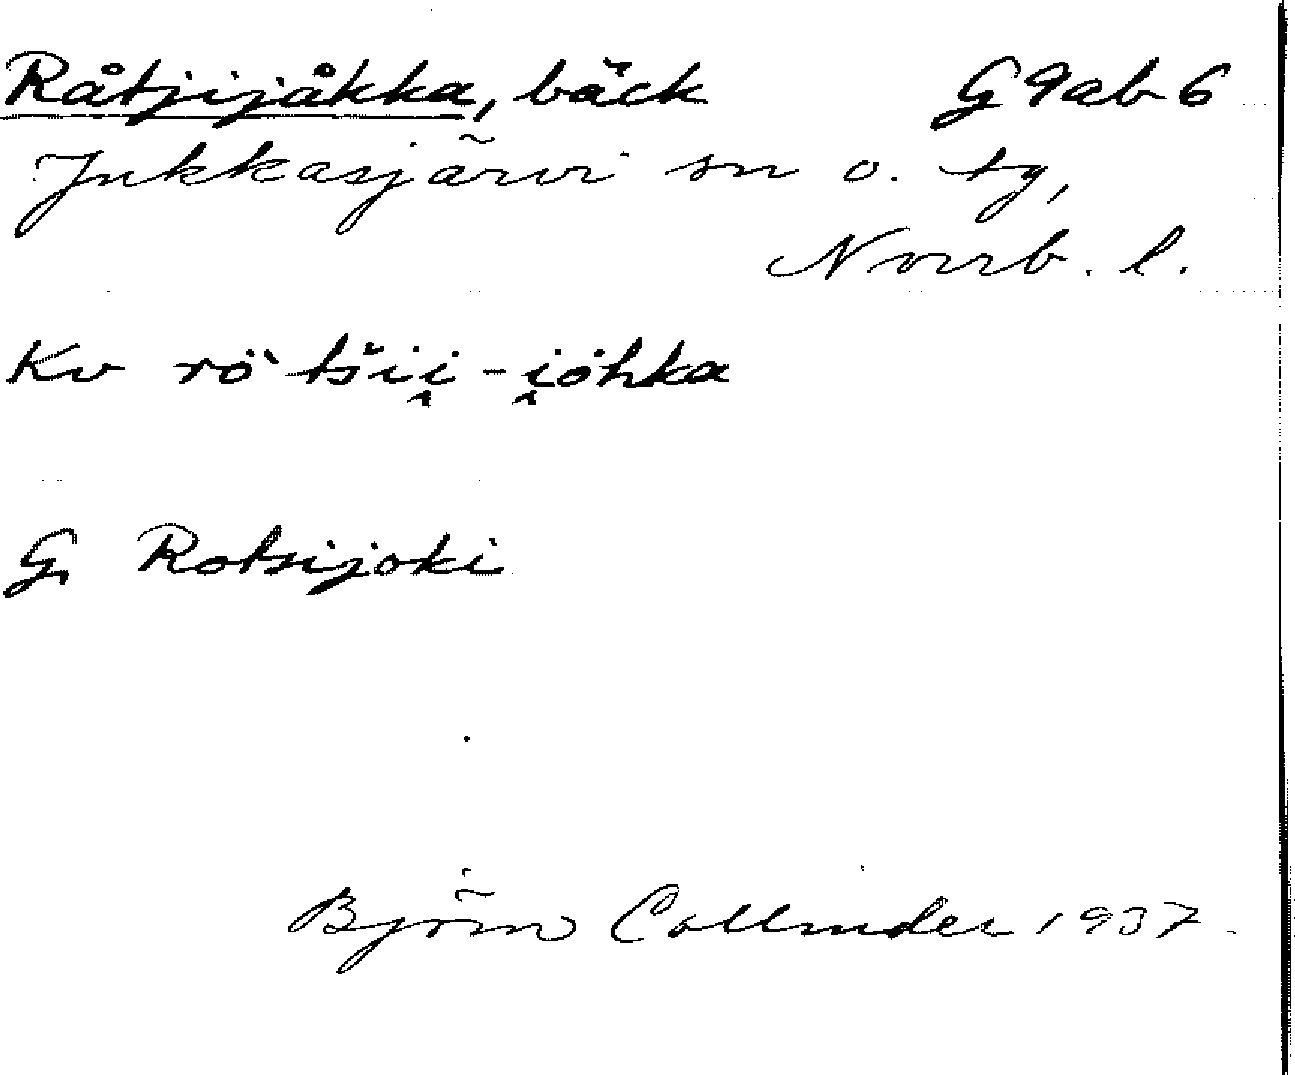 Råtjijåkka, bäck G9ab6
Jukkasjärvi sn o. tg,
Norrb. l.
Kv rȯ̀tšii̯-i̯ȯhka
G, Rotsijoki
Björn Collinder 1937.